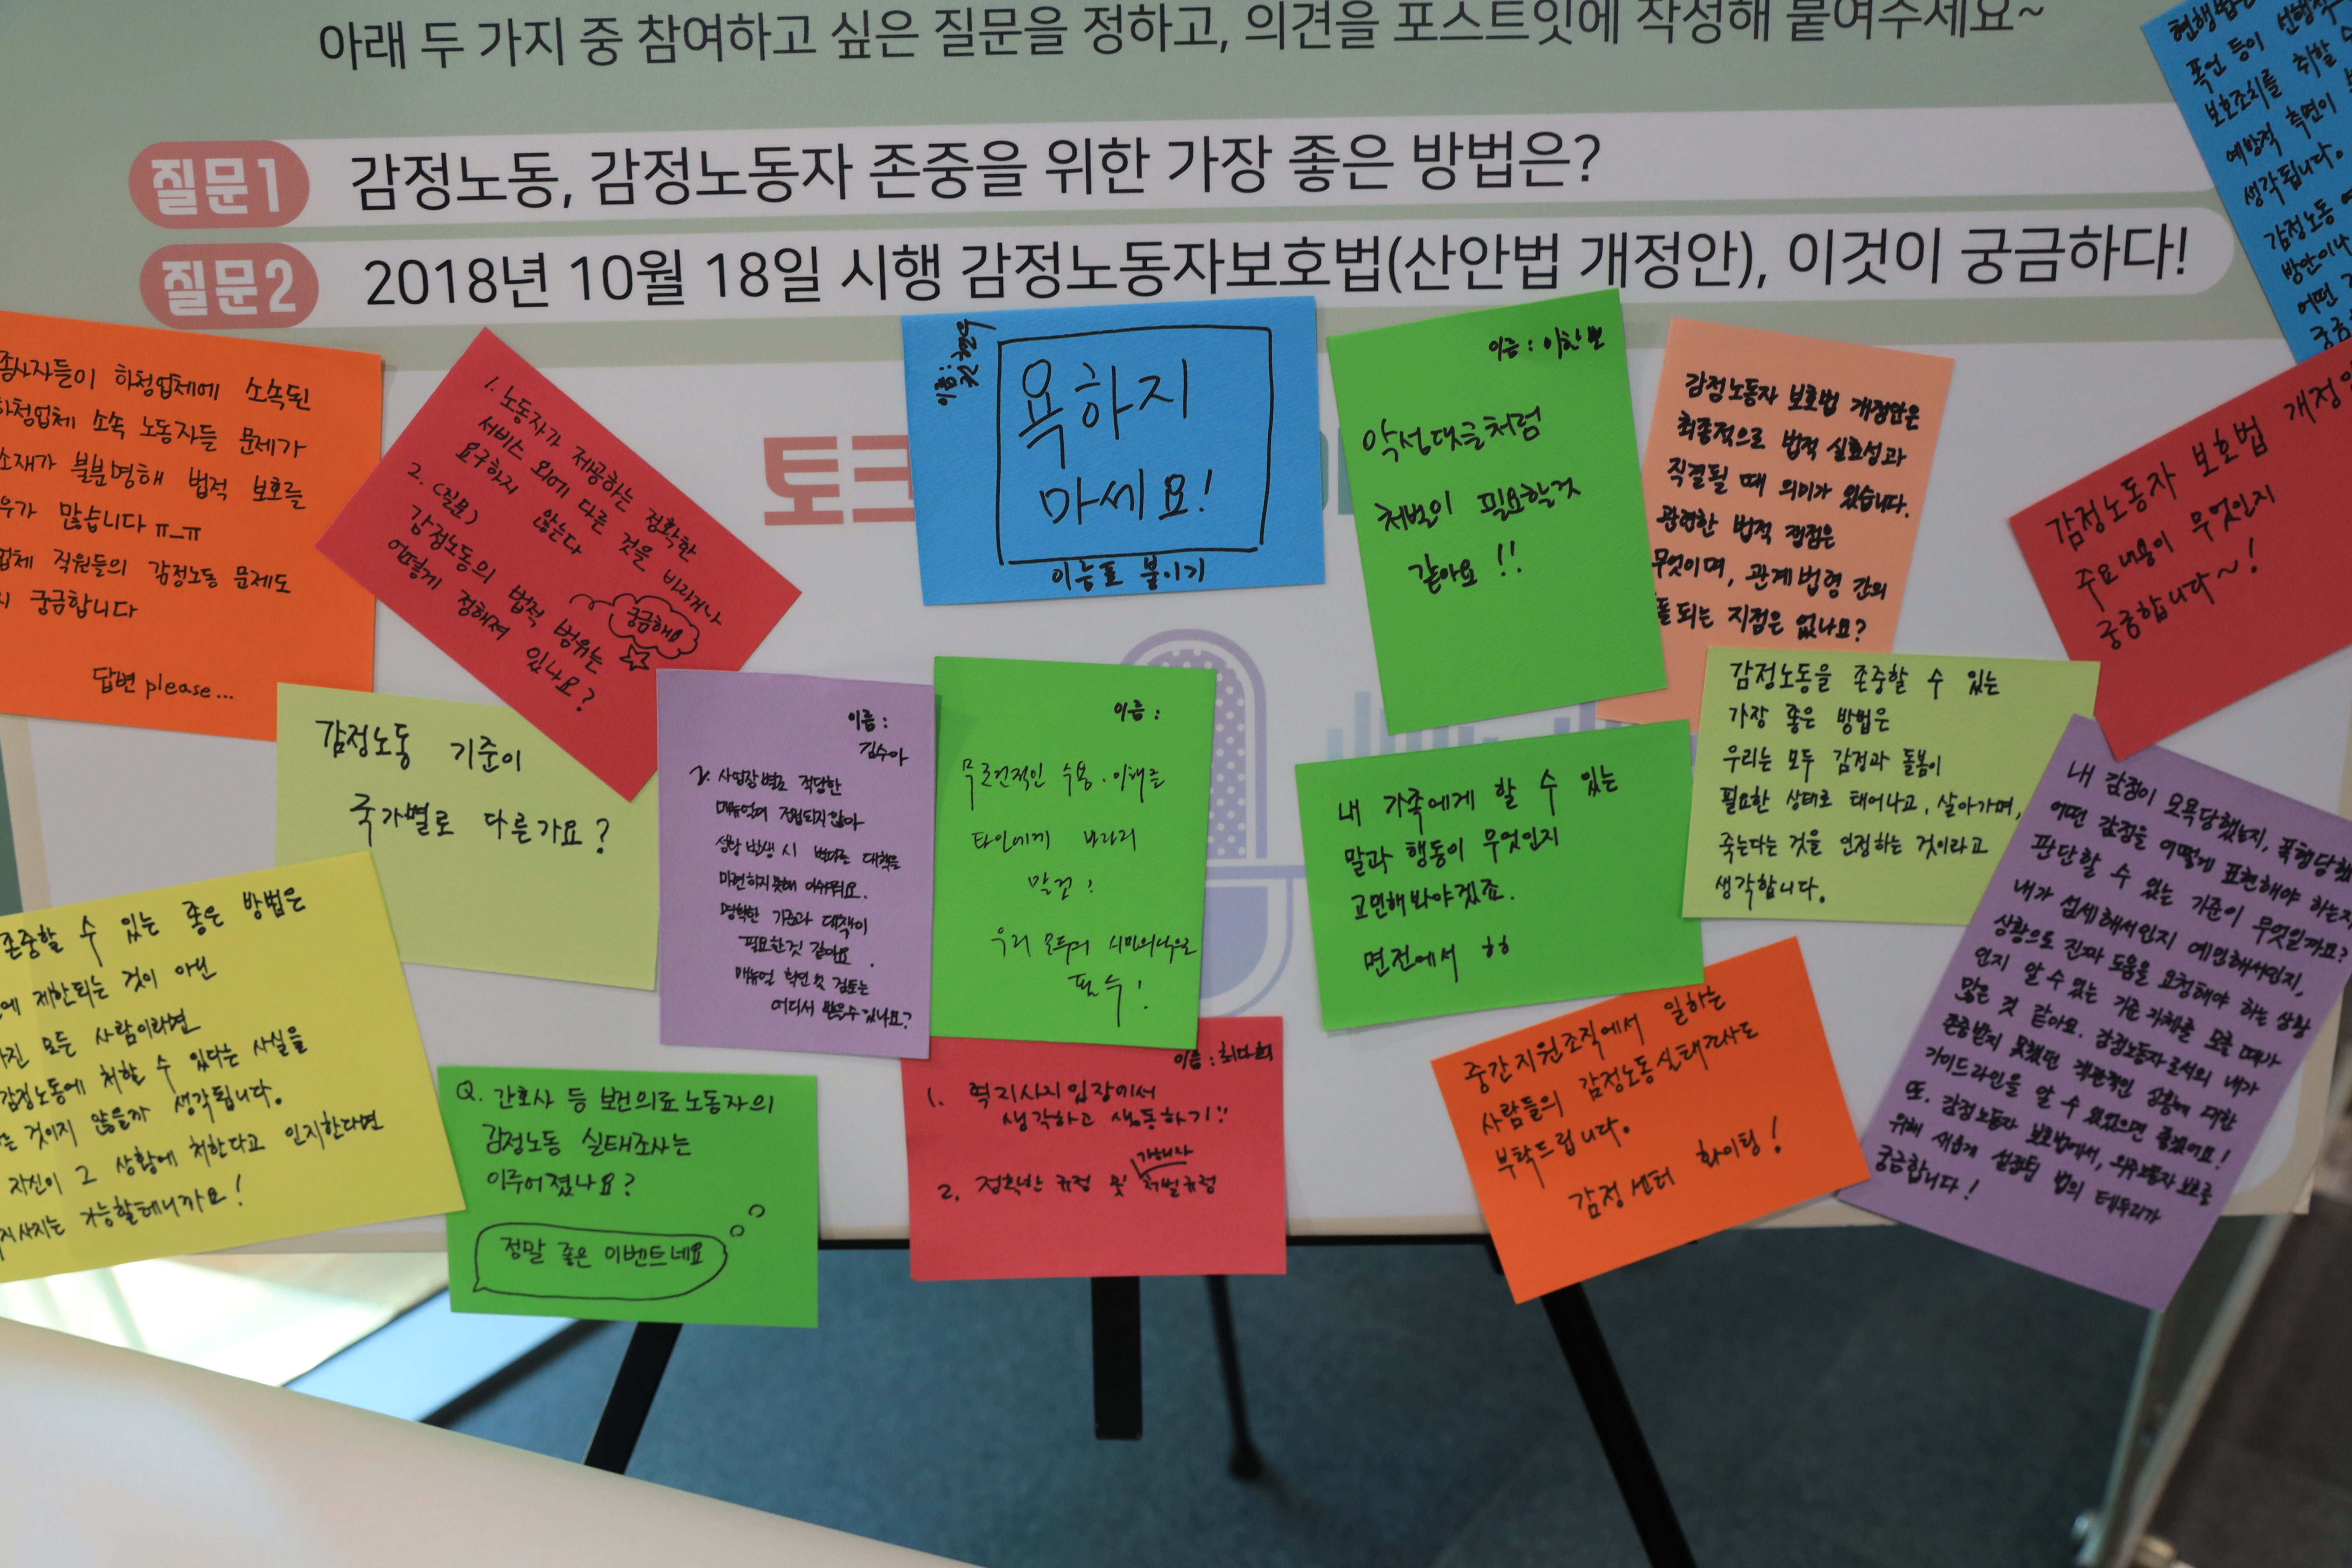 아래 두 가지 중 참여하고 싶은 질문을 정하고, 의견을 포스트잇에 작성해 붙여주세요~
질문1 감정노동, 감정노동자 존중을 위한 가장 좋은 방법은?
질문2 2018년 10월 18일 시행 감정노동자보호법(산안법 개정안), 이것이 궁금하다!
토크
종사자들이 하청업체에 소속된
하청업체 소속 노동자들 문제가
소재가 불분명해 법적 보호를
우가 많습니다 ㅠ_ㅠ
업체 직원들의 감정노동 문제도
궁금합니다
답변 please...
1. 노동자가 제공하는 정확한
서비스 외에 다른 것을 바라거나
요구하지 않는다
2. (질문)
감정노동의 법적 범위는
어떻게 정해져 있나요?
궁금해요
이름:
욕하지
마세요!
이름표 붙이기
이름:
악성댓글처럼
처벌이 필요할것
같아요!!
감정노동자 보호법 개정안은
최종적으로 법적 실효성과
직결될 때 의미가 있습니다.
관련한 법적 쟁점은
무엇이며, 관계법령 간의
되는 지점은 없나요?
폭언 등이
보호조치를 취할
예방적 측면이
생각됩니다.
감정노동
방안이나
어떤
감정노동자 보호법 개정안
주요내용이 무엇인지
궁금합니다~!
감정노동 기준이
국가별로 다른가요?
이름:
김수아
2. 사업장별로 적당한
매뉴얼이 정립되지 않아
상황 발생 시 대책을
마련하지 못해 아쉬워요.
명확한 기준과 대책이
필요한것 같아요.
매뉴얼 확인 및 검토는
어디서 받을수 있나요?
이름:
무조건적인 수용·이해를
타인에게 바라지
말것!
우리 모두의
필수!
내 가족에게 할 수 있는
말과 행동이 무엇인지
고민해봐야겠죠.
면전에서 ㅎㅎ
감정노동을 존중할 수 있는
가장 좋은 방법은
우리는 모두 감정과 돌봄이
필요한 상태로 태어나고, 살아가며,
죽는다는 것을 인정하는 것이라고
생각합니다.
내 감정이 모욕당했는지, 폭행당했
어떤 감정을 어떻게 표현해야 하는지
판단할 수 있는 기준이 무엇일까요?
내가 섬세해서인지 예민해서인지,
상황으로 진짜 도움을 요청해야 하는 상황
인지 알 수 있는 기준 자체를 모를 때가
많은 것 같아요. 감정노동자로서의 내가
존중받지 못했던 객관적인 상황에 대한
가이드라인을 알 수 있었으면 좋겠어요!
또, 감정노동자 보호법에서, 보호를
위해 새롭게 설정된 법의 테두리가
궁금합니다!
존중할 수 있는 좋은 방법은
에 제한되는 것이 아닌
가진 모든 사람이라면
감정노동에 처할 수 있다는 사실을
것이지 않을까 생각됩니다.
자신이 그 상황에 처한다고 인지한다면
가능할테니까요!
Q. 간호사 등 보건의료노동자의
감정노동 실태조사는
이루어졌나요?
정말 좋은 이벤트네요
이름:최다희
1. 역지사지 입장에서
생각하고 행동하기!!
2. 정확한 규정 및 가해자 처벌규정
중간지원조직에서 일하는
사람들의 감정노동실태조사도
부탁드립니다.
감정센터 화이팅!